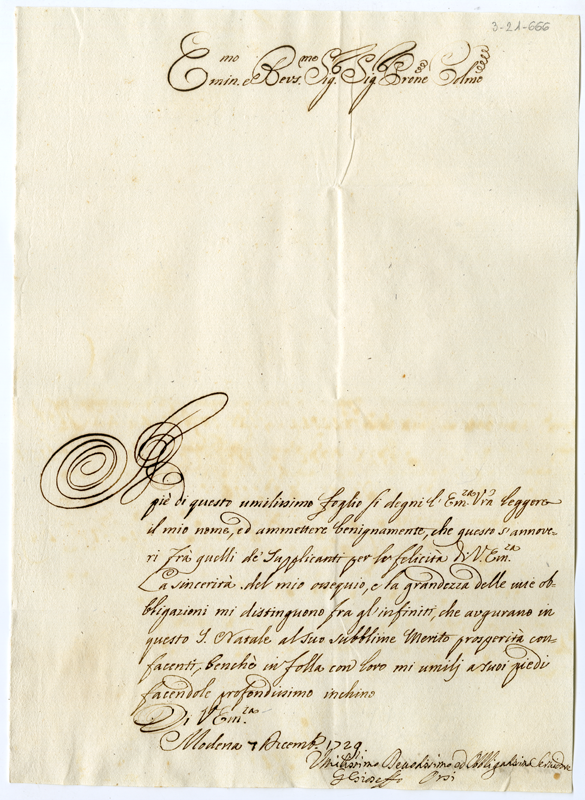 3-21-666
Emin.mo e Revs.mo Sig.r Sig. Prone Colmo
A piè di questo umilissimo foglio si degni l'Em.za Vra leggere
il mio nome, ed ammettere benignamente, che questo s'annove-
ri frà quelli de' Supplicanti per le felicità di V. Em.za
La sincerità del mio ossequio, e la grandezza delle mie ob-
bligazioni mi distinguono fra gl'infiniti, che augurano in
questo S. Natale al suo subblime Merito prosperità con-
facenti, benchè in folla con loro mi umilj a suoi piedi
facendole profondissimo inchino
Di V. Em.za
Modena 7 Dicemb. 1729.
Umilissimo Devotissimo ed Obbligatissimo Servidore
Gioseffo Orsi